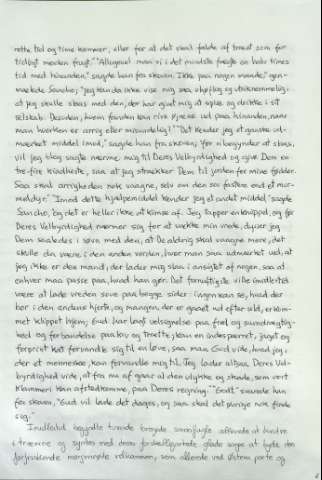 rette tid og time kommer, eller for at det skal falde af træet som for
tidligt moden frugt." "Allugud man vi i det mindste fægte en halv times
tid med hinanden," sagde han fra skoven. "Ikke paa nogen maade," gen-
mælede Sancho; "jeg kan da ikke vise mig saa uhøflig og utaknemmelig,
at jeg skulle slaas med den, der har givet mig at spise og drikke i sit
selskab. Desuden, hvem fanden kan rive øjnene ud paa hinanden, naar
man hverken er arrig eller misundelig?" "Det kender jeg et ganske ud-
mærket middel imod," sagde han fra skoven; "før vi begynder at slaas,
vil jeg slog sagte nærme mig til Deres Velbyrdighed og give Dem en
tre-fire kindheste, saa at jeg strækker Dem til jorden for mine fødder.
Saa skal arrigheden nok vaagne, selv om den sov fastere end et mur-
meldyr." "Imod dette hjælpemiddel kender jeg et andet middel," sagde
Sancho, "og det er heller ikke at kimse af. Jeg tager en knippel, og før
Deres Velbyrdighed nærmer sig for at vække min vrede, dysser jeg
Dem saaledes i søvn med den, at De aldrig skal vaagne mere, det
skulle da være i den anden verden, hvor man saa udmærket ved, at
jeg ikke er den mand, der lader mig slaa i ansigtet af nogen, saa at
enhver maa passe paa, hvad han gør. Det fornuftigste ville imidlertid
være at lade vreden sove paa begge sider; ingen kan se, hvad der
bor i den andens hjerte, og mangen, der er gaaet ud efter uld, er kom-
met klippet hjem; Gud har lagt velsignelse paa fred og
og forbandelse paa kiv og trætte; kan en indespærret, jaget og
forpint kat forvandle sig til en løve, saa maa Gud vide, hvad jeg,
der er menneske, kan forvandle mig til. Jeg lader altsaa Deres Vel-
byrdighed vide, at fra nu af gaar al den ulykke og skade, som vort
klammeri kan afstedkomme, paa Deres regning." "Godt," svarede han
fra skoven, "Gud vil lade det dages, og saa skal det øvrige nok finde
sig."
Imidlertid begyndte tusinde brogede sangfugle allerede at kvidre
i træerne og syntes med deres forskelligartede glade sange at byde den
forfriskende morgenrøde velkommen, som allerede ved Østens porte og